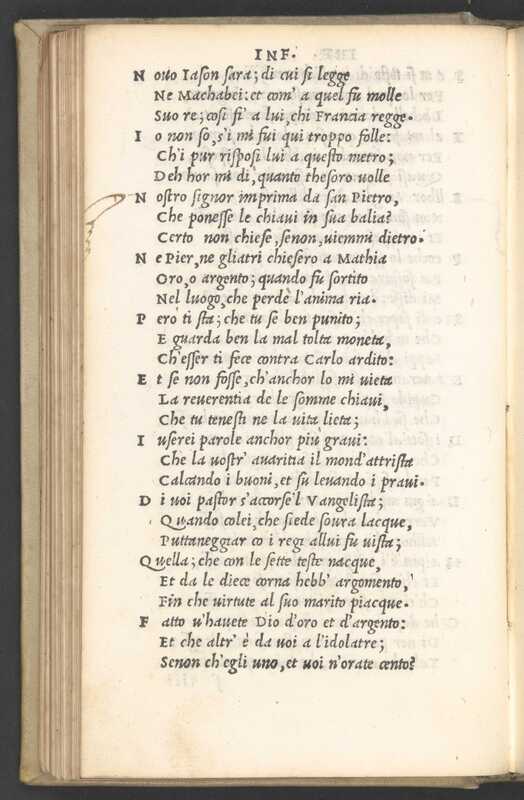 INF.
N ouo Iason sara; di cui si legge
Ne Machabei: et com' a quel fu molle
Suo re; cosi fi' a lui, chi Francia regge.
I o non so, s'i mi fui qui troppo folle:
Ch'i pur risposi lui a questo metro;
Deh hor mi di, quanto thesoro uolle
N ostro signor imprima da san Pietro,
Che ponesse le chiaui in sua balia?
Certo non chiese, senon, uiemmi dietro.
N e Pier, ne gliatri chiesero a Mathia
Oro, o argento; quando fu sortito
Nel luogo, che perdè l'anima ria.
P ero ti sta; che tu se ben punito;
E guarda ben la mal tolta moneta,
Ch'esser ti fece contra Carlo ardito:
E t se non fosse, ch'anchor lo mi uieta
La reuerentia de le somme chiaui,
Che tu tenesti ne la uita lieta;
I userei parole anchor più graui:
Che la uostr' auaritia il mond'attrista
Calcando i buoni, et su leuando i praui.
D i uoi pastor s'accorse'l Vangelista;
Quando colei, che siede soura lacque,
Puttaneggiar co i regi allui fu uista;
Quella; che con le sette teste nacque,
Et da le diece corna hebb' argomento,
Fin che uirtute al suo marito piacque.
F atto u'hauete Dio d'oro et d'argento:
Et che altr' è da uoi a l'idolatre;
Senon ch'egli uno, et uoi n'orate cento?